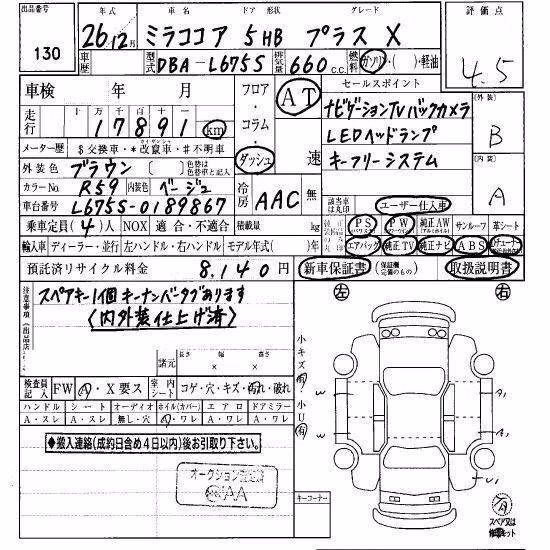 出品番号 年式 車名 ドア形状 グレード 評価点
130 26年12月 ミラココア 5HB プラスX 4.5
車歴 型式 DBA-L675S 排気量 660 c.c. 燃料 ガソリン・( )・軽油
車検 年 月 フロア・コラム・ダッシュ AT 速 セールスポイント
走行 十万千百十一 17891 km ナビゲーションTV バックカメラ 外装 B
メーター歴 $交換車・*改竄車・#不明車 LEDヘッドランプ
外装色 ブラウン 色替は色替車と記入 キーフリーシステム 内装 A
カラーNo R59 内装色 ベージュ 冷房 AAC 無
車台番号 L675S-0189867 該当車は丸印 ユーザー仕入車
乗車定員(4)人 NOX 適合・不適合 積載量 kg PS PW 純正AW サンルーフ 革シート
輸入車 ディーラー・並行 左ハンドル・右ハンドル モデル年式( )年 エアバック 純正TV 純正ナビ ABS
預託済リサイクル料金 8,140円 新車保証書 (保証欄完備のもの) 取扱説明書
注意事項(出品店) スペアキー1個 キーナンバータグあります 左 右
(内外装仕上げ済)
諸元 長さ 幅 高さ × ×
検査員記入 FW A・X要ス 室内シート コゲ・穴・キズ・汚れ・破れ 小キズ有 小U有
ハンドル シート オーディオ ホイル(カバー) エアロ ドアミラー
A・スレ A・スレ 無し・穴 A・ワレ A・ワレ A・ワレ
◆搬入連絡(成約日含め4日以内)後お引取り下さい。◆
キーコーナー
スペア又は修理キット